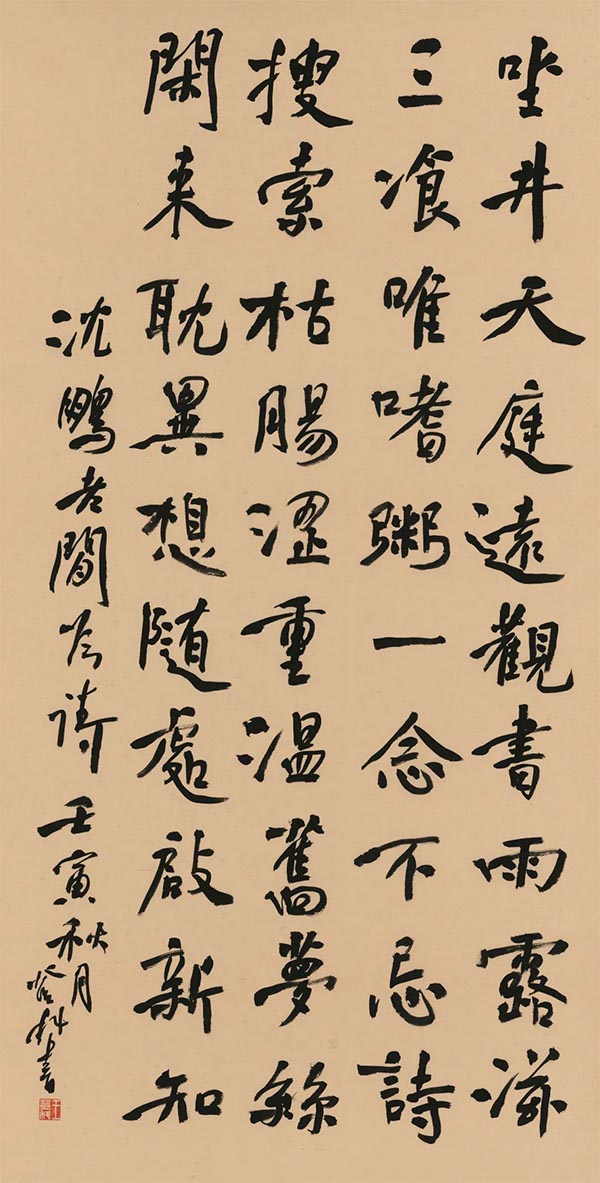 坐井天庭遠觀書雨露滋
三飡唯嗜粥一念不忘詩
搜索枯腸澀重溫舊夢絲
閑来耽異想隨處啟新知
沈鵬老閒吟詩 壬寅秋月 書